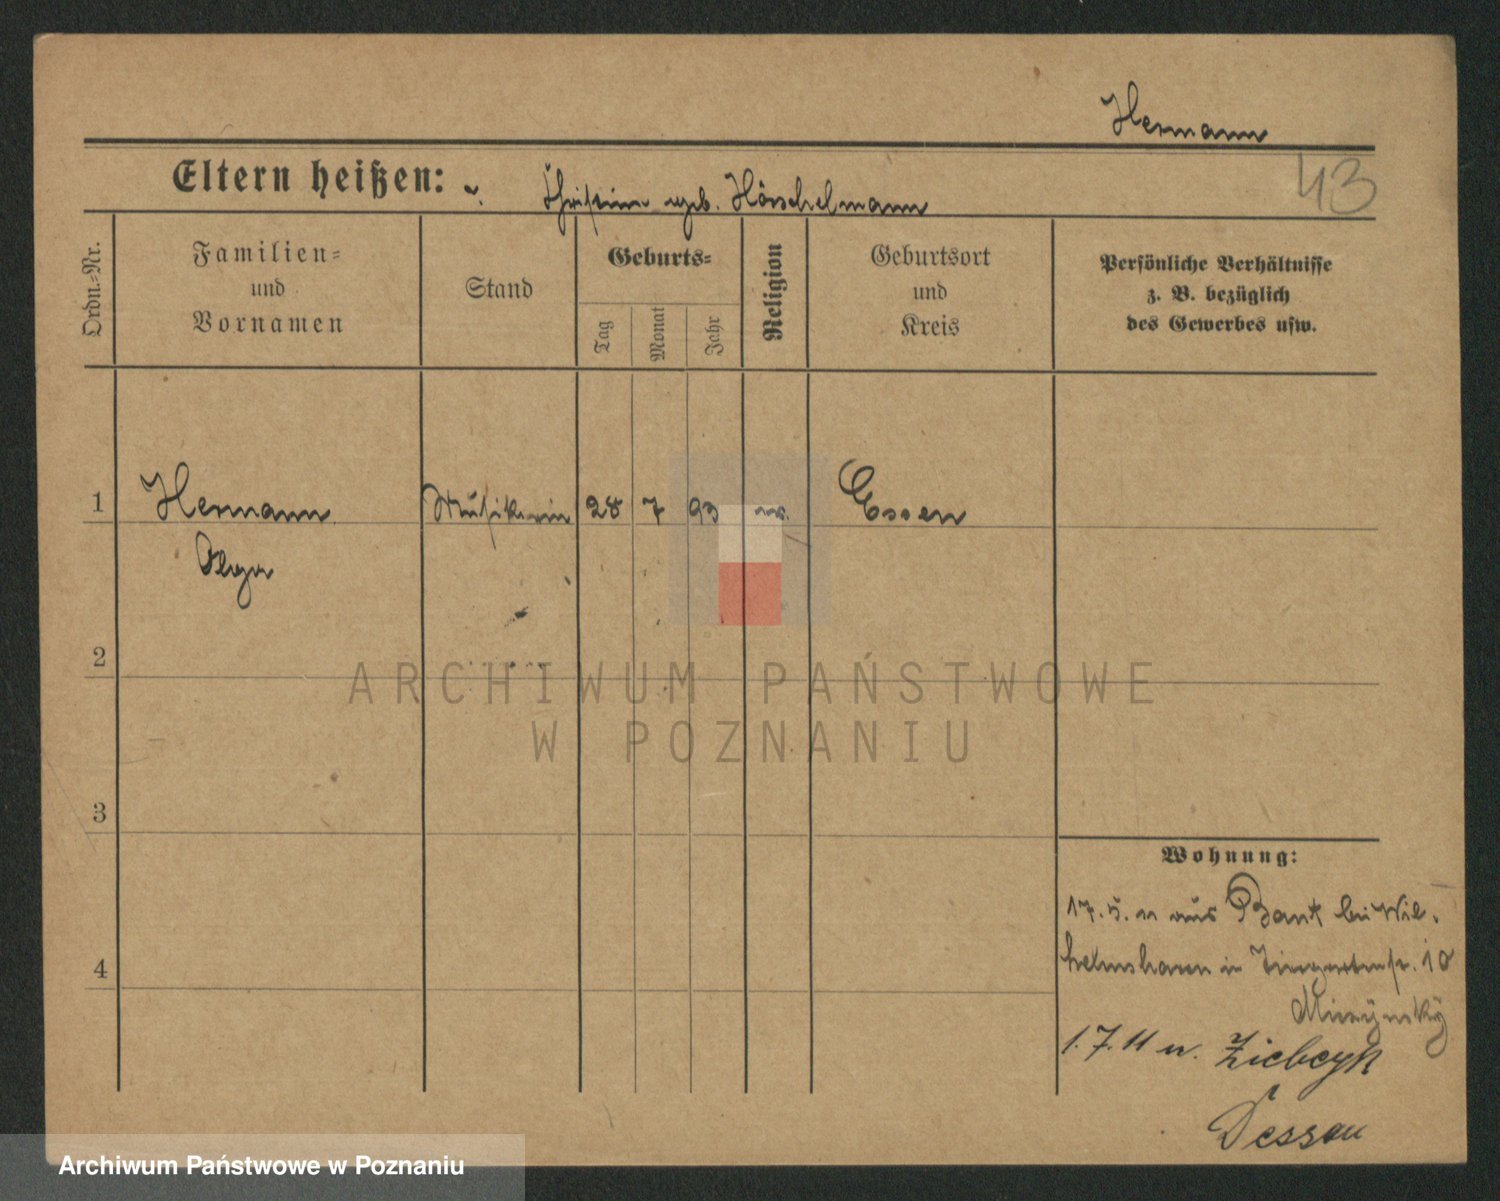 Hermann
43
Eltern heißen: Christine geb. Höschelmann
Ordn.=Nr.
Familien=
und
Vornamen
Stand
Geburts=
Tag
Monat
Jahr
Religion
Geburtsort
und
Kreis
Persönliche Verhältnisse
z. B. bezüglich
des Gewerbes usw.
1 Hermann Musikerin 28 7 93 ev. Essen
Olga
2
3
4
Wohnung:
17.5.11 aus Bant bei Wil-
helmshaven in Tiergartenstr. 10
1.7.11 n.
Dessau
ARCHIWUM PAŃSTWOWE
W POZNANIU
Archiwum Państwowe w Poznaniu